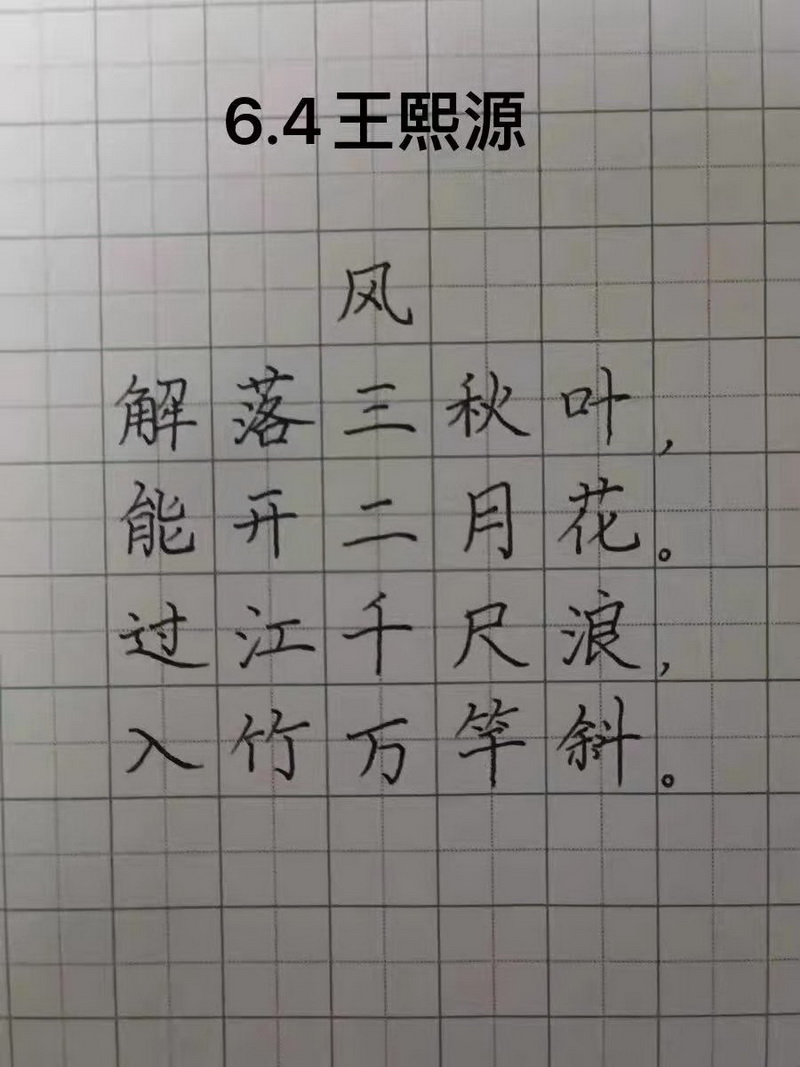 6.4王熙源
风
解落三秋叶，
能开二月花。
过江千尺浪，
入竹万竿斜。